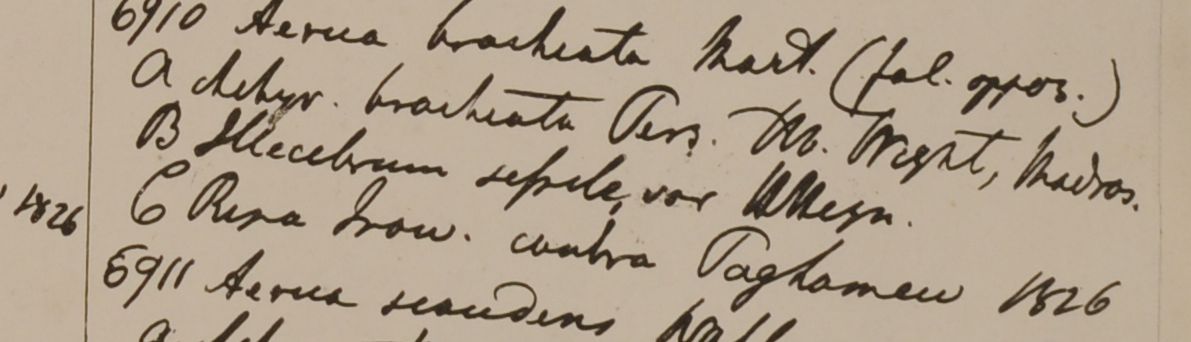 6910 Aerua brachiata Mart. (fol. oppos.)
A Achyr. brachiata Pers. Hb. Wight, Madras.
B Illecebrum sessile, var HHeyn.
1826
C Ripa Irow. contra Taghamew 1826
6911 Aerua scandens Wall